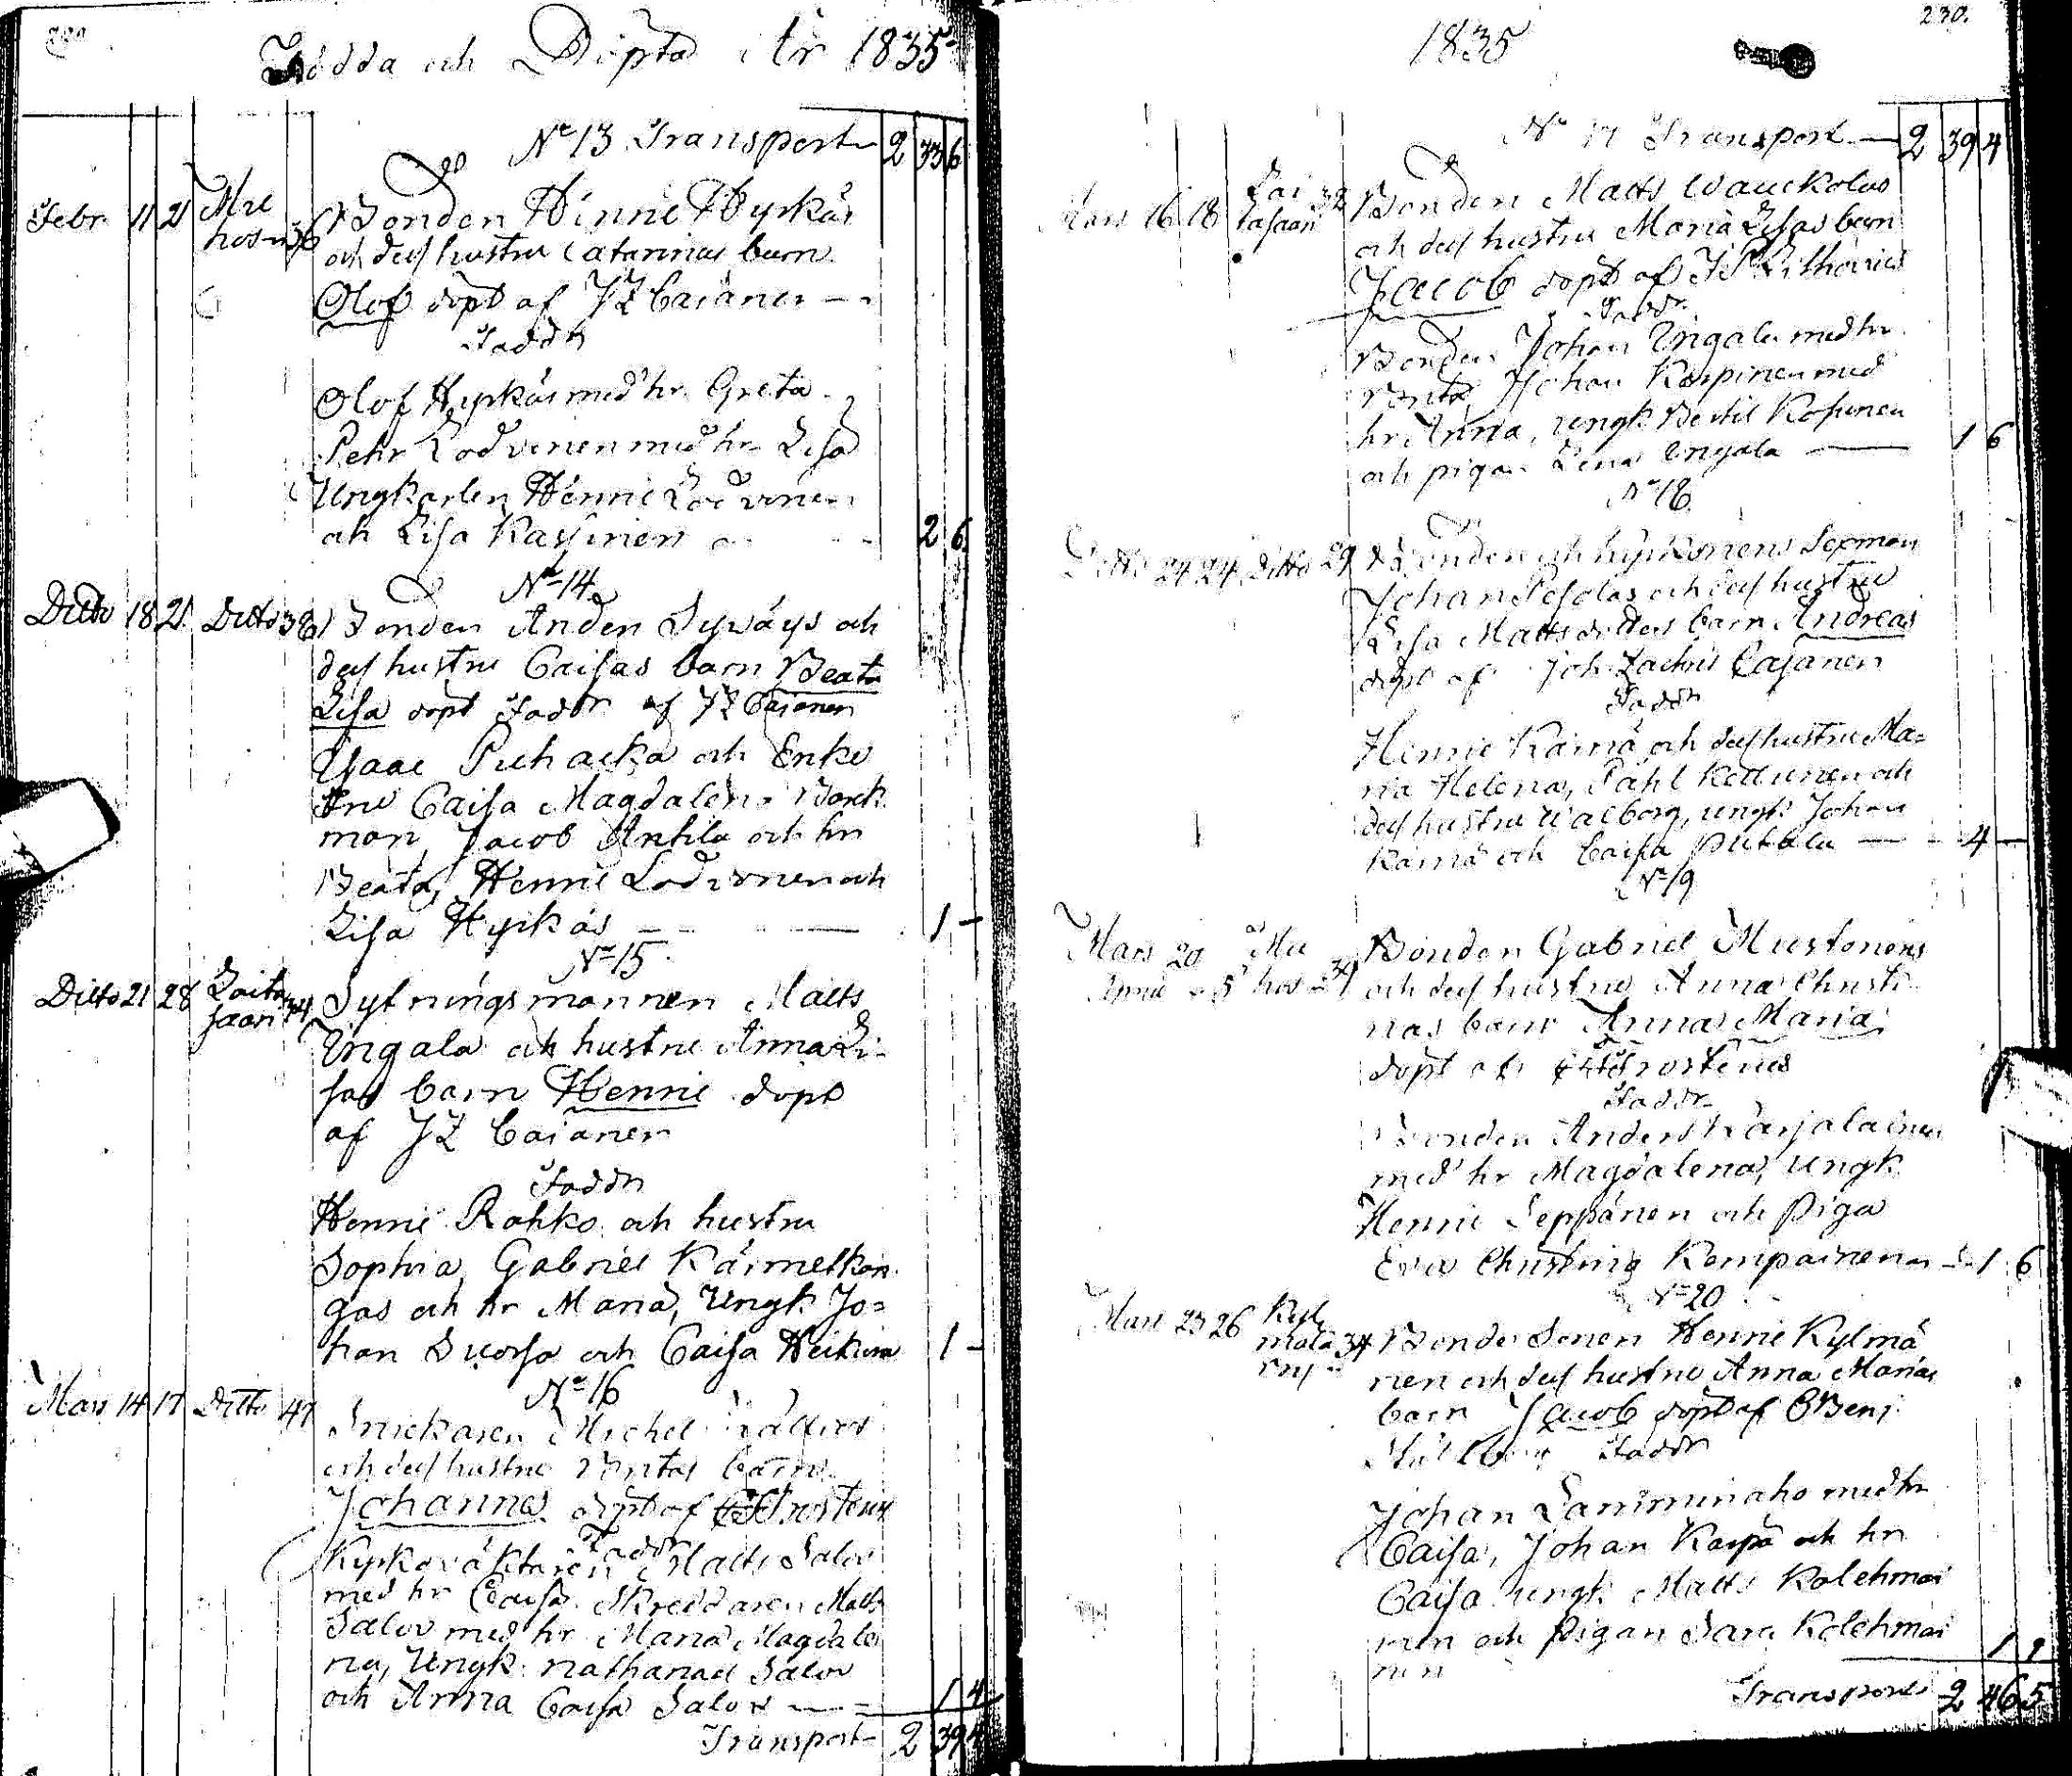 229
Födda och Döpta År 1835
No 13 Transport 2 33 6
Febr. 11 21 Mie
hos 36 Bonden Hinrie Hyrkäs
och dess hustru Catarinas barn
Olof döpt af JZ Cajaner
Faddr
Olof Hyrkäs med hr. Greta
Pehr Lodvenen med hr Lisa
Ungkarlen Hennie Lodvenen
och Lisa Kassinen 2 6
No 14
Ditto 18 21 Ditto 36 Bonden Anders Sywäys och
dess hustru Caisas barn Beata
Lisa döpt Faddr af JZ Cajanen
Isaac Puhacka och Enke
Fru Caisa Magdalena Borck
man, Jacob Anttila och hr
Beata, Hennie Lodvenen och
Lisa Hyrkäs 1 -
No 15
Ditto 21 28 Laita
saari 24 Sytningsmannen Matts
Ingala och hustru Anna Li-
sas barn Hennie döpt
af JZ Cajanen
Faddr
Hennie Rohko och hustru
Sophia, Gabriel Kärmelkan
gas och hr Maria, Ungk. Jo=
han Suorsa och Caisa Heikura 1 -
No 16
Mars 14 17 Ditto 41
Snickaren Michel
och dess hustru Britas barn
Johannes döpt af Frosterus
Faddr
Kyrkoväktaren Matts Salov
med hr Caisa. Skreddaren Matts
Salov med hr Maria Magdale
na, Ungk. Nathanael Salov
och Anna Caisa Salov 1 4
Transport 2 39 4
230.
1835
No 17 Transport 2 39 4
Mars 16 18 Lai
tasaari 32 Bonden Matts Wauckolas
och dess hustru Maria Lisas barn
Jacob döpt af
Faddr
Bonden Johan Ingala med hr
Brita, Johan Karpinen med
hr Anna, ungk. Bertil Kosunen
och pigan Lena Ingala 1 6
No 18
Ditto 24 24 Ditto 29 Bonden och kyrkonens Sexman
Johan Pesolas och dess hustru
Lisa Mattsdotters barn Andreas
döpt af Joh. Zachris Cajanen
Faddr
Hennie Kämä och dess hustru Ma=
ria Helena, Påhl Kettunen och
dess hustru Walborg, ungk. Johan
Kämä och Caisa Putula 4 -
No 19
Mars 20 Mu
April 5 hos 34 Bonden Gabriel Mustonens
och dess hustru Anna Christi-
nas barn Anna Maria
döpt af Frosterus
Faddr
Bonden Anders Karjalainen
med hr Magdalena, Ungk.
Hennie Seppänen och Piga
Eva Christina Kempainen 1 6
No 20
Mars 23 26 Kyl
mälä 34 Bonde Sonen Hennie Kylmä
nen och dess hustru Anna Marias
barn Jacob döpt af Benj.
Faddr
Johan Lamminaho med hr
Caisa, Johan Karpä och hr
Caisa ungk. Matts Kolehmai
nen och Pigan Sara Kolehmai
nen 1 1
Transport 2 46 5